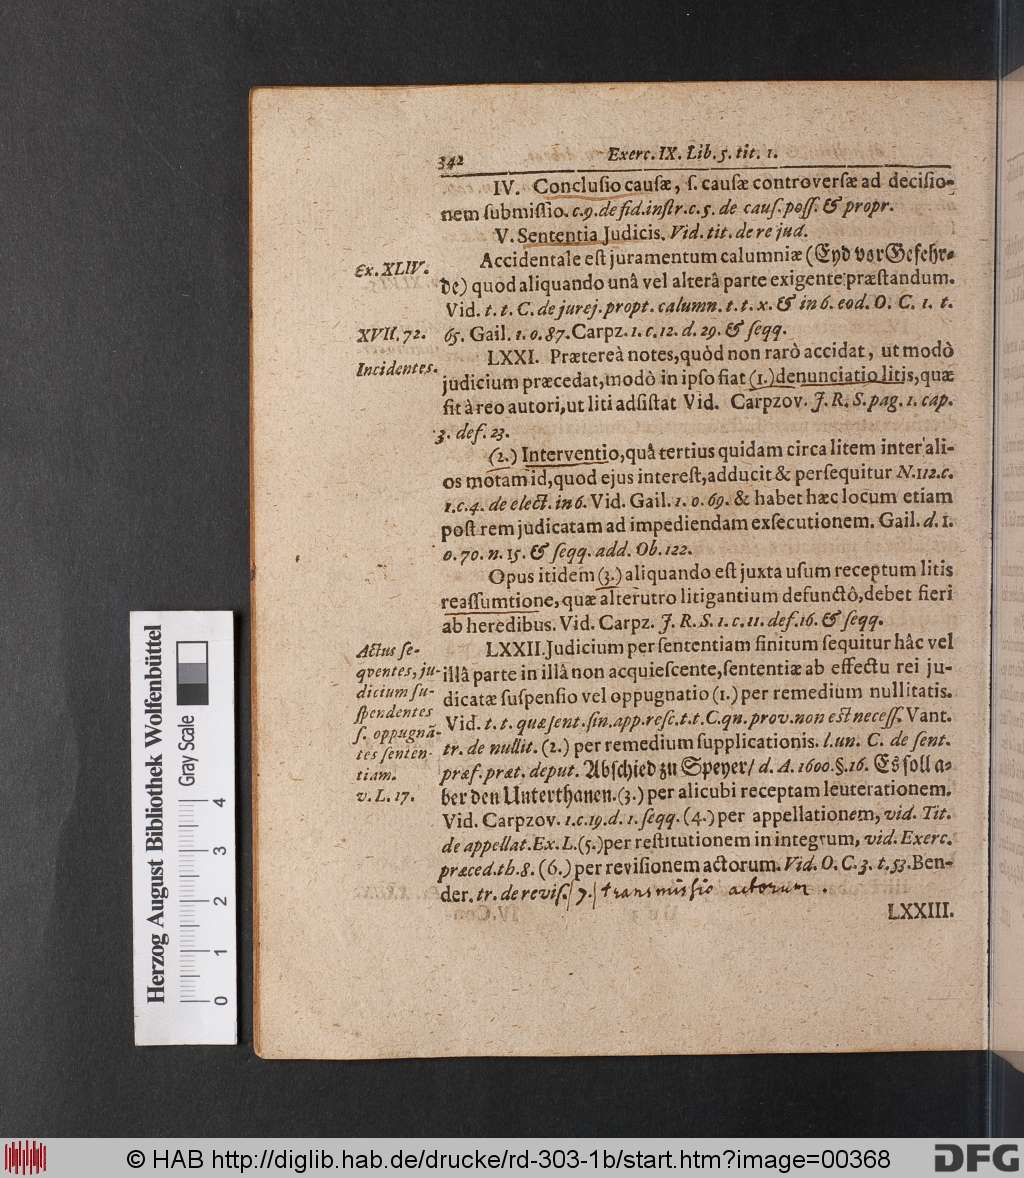 342
Exerc. IX. Lib. 5. tit. 1.
IV. Concluſio cauſæ, ſ. cauſæ controverſæ ad deciſio-
nem ſubmiſſio. c. 9. de fid. inſtr. c. 5. de cauſ. poſſ. & propr.
V. Sententia Judicis. Vid. tit. de re jud.
Ex. XLIV.
Accidentale eſt juramentum calumniæ (Eyd vor Gefehr-
de) quod aliquando unâ vel alterâ parte exigente præſtandum.
Vid. t. t. C. de jurej. propt. calumn. t. t. x. & in 6. eod. O. C. 1. t.
XVII. 72.
65. Gail. 1. o. 87. Carpz. 1. c. 12. d. 29. & ſeqq.
Incidentes.
LXXI. Prætereà notes, quòd non rarò accidat, ut modò
judicium præcedat, modò in ipſo fiat (1.) denunciatio litis, quæ
fit à reo autori, ut liti adſiſtat Vid. Carpzov. J. R. S. pag. 1. cap.
3. def. 23.
(2.) Interventio, quâ tertius quidam circa litem inter ali-
os motam id, quod ejus intereſt, adducit & perſequitur N. 112. c.
1. c. 4. de elect. in 6. Vid. Gail. 1. o. 69. & habet hæc locum etiam
poſt rem judicatam ad impediendam exſecutionem. Gail. d. 1.
o. 70. n. 15. & ſeqq. add. Ob. 122.
Opus itidem (3.) aliquando eſt juxta uſum receptum litis
reaſſumtione, quæ alterutro litigantium defunctô, debet fieri
ab heredibus. Vid. Carpz. J. R. S. 1. c. 11. def. 16. & ſeqq.
Actus ſe-
qventes, ju-
dicium ſu-
ſpendentes
ſ. oppugnã-
tes ſenten-
tiam.
v. L. 17.
LXXII. Judicium per ſententiam finitum ſequitur hâc vel
illâ parte in illâ non acquieſcente, ſententiæ ab effectu rei ju-
dicatæ ſuſpenſio vel oppugnatio (1.) per remedium nullitatis.
Vid. t. t. quæ ſent. ſin. app. reſc. t. t. C. qn. prov. non eſt neceſſ. Vant.
tr. de nullit. (2.) per remedium ſupplicationis. l. un. C. de ſent.
præf. præt. deput. Abſchied zu Speyer/ d. A. 1600. §. 16. Es ſoll a-
ber den Unterthanen. (3.) per alicubi receptam leuterationem.
Vid. Carpzov. 1. c. 19. d. 1. ſeqq. (4.) per appellationem, vid. Tit.
de appellat. Ex. L. (5.) per reſtitutionem in integrum, vid. Exerc.
præced. th. 8. (6.) per reviſionem actorum. Vid. O. C. 3. t. 53. Ben-
der. tr. de reviſ. / 7. / transmissio actorum.
LXXIII.
Herzog August Bibliothek Wolfenbüttel
Gray Scale
0 1 2 3 4
© HAB http://diglib.hab.de/drucke/rd-303-1b/start.htm?image=00368
DFG